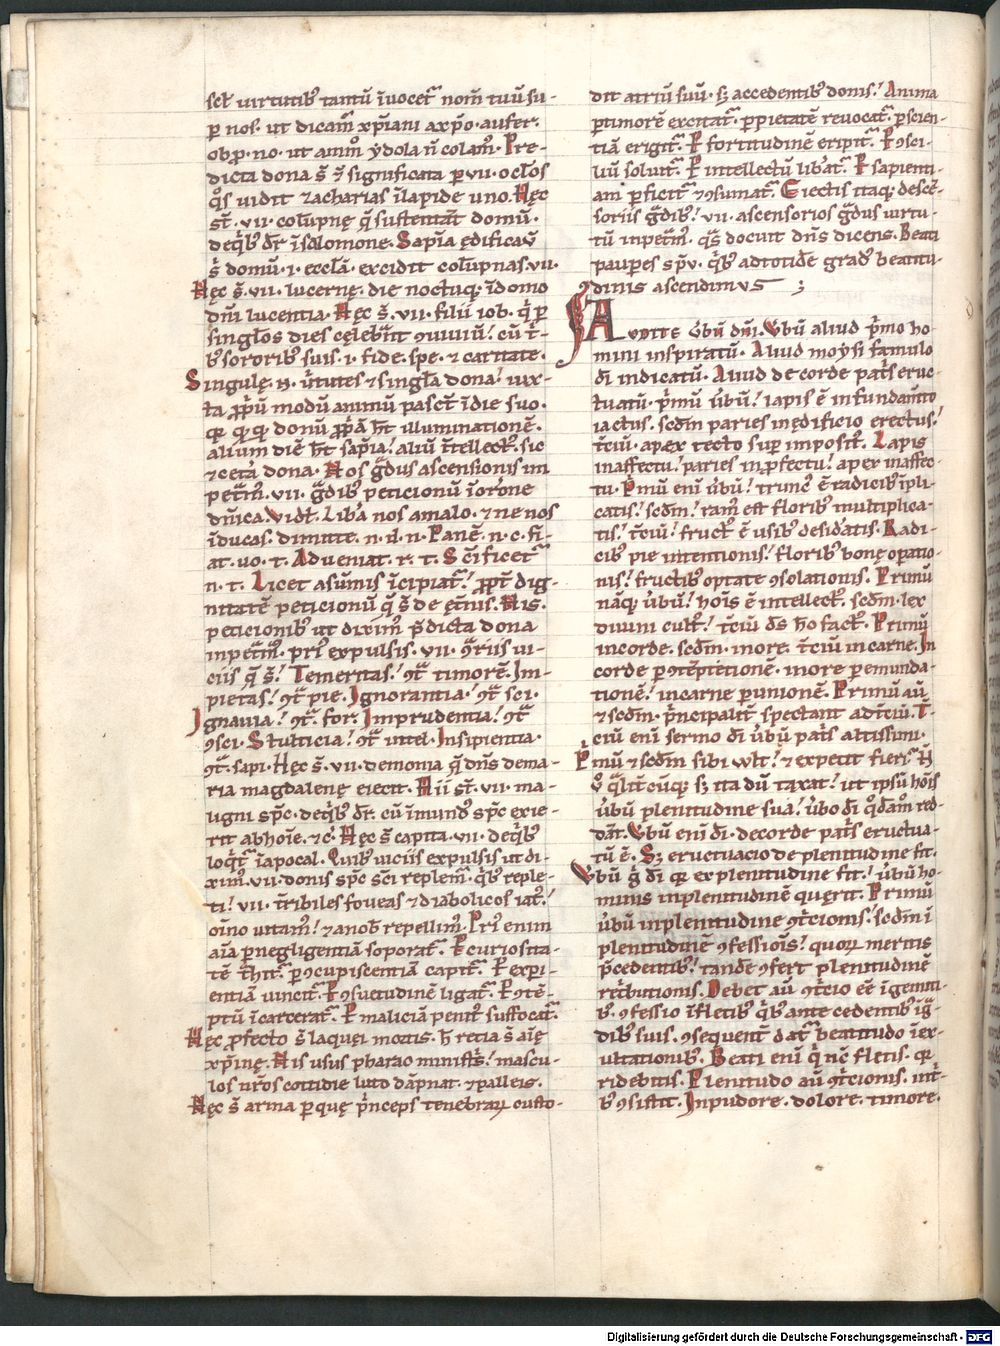 scł virtutib᷒ tantū īvocet᷑ nom̄ tuū su-
ꝑ nos. ut dicam᷒ xp̄iani a xp̄o. aufer.
obp. no. ut ām̄ ydola n̄ colam᷒. Pre-
dicta dona s̄ ⁊ significata ꝑ vii. oclōs
q̊s vidit zacharias ī lapide uno. Hęc
sт̄. vii. colūpnę q̄ sustentāt domū.
de q̇b᷒ dr̄ ī salomone. Sapīa ędificau̅
s̄ domū. i. ecclā. excidit colūpnas. vii.
Hęc s̄. vii. lucernę. die noctuq; ī domo
dn̄i lucentia. Hęc s̄. vii. filii iob. q̇ ꝑ
singłos dies celebrāt ꝯuiuiū. cū t̄-
b᷒ sororib᷒ suis. i. fide. spe. ⁊ caritate.
Singulę. n. v̄tutes ⁊ singła dona! iux-
ta ꝓp̄ū modū animū pascт̄ ī die suo.
donū ꝓp̄ā hт̄ illuminationē.
alium diē hт̄ sapīa! aliū ītellect᷒. sic
⁊ cetá dona. Hos g̊dus ascensionis im
petm᷒. vii. g̊dib᷒ peticionū ī or̄one
dn̄ica. Vidł. Libá nos a malo. ⁊ ne nos
īducas. dimitte. n. d. n. Panē. n. c. fi-
at. uo. t. Adveniat. r. t. Scīficet᷑
n. t. Licet a sūmis īcipiat᷑! ꝓpт̄ dig-
nitatē peticionū q̄ s̄ de ęт̄nis. His.
peticionib᷒ ut dixim᷒ p̄dicta dona
inpetm᷒. pri᷒ expulsis. vii. ꝯ̄riis ui-
ciis q̄ s̄! Temeritas! ꝯт᷑ timorē. Im-
pietas! ꝯт᷑ pie. Ignorantia! ꝯт᷑ sci.
Ignavia! ꝯт᷑. for. Imprudentia! ꝯт᷑
ꝯsci. Stulticia! ꝯт᷑ intel. Insipientia.
ꝯт᷑. sapi. Hęc s̄. vii. demonia q̄ dn̄s de ma-
ria magdalenę eiecit. Hii sт̄. vii. ma-
ligni spc̄. de q̇b᷒ dr̄. cū īmund᷒ spc̄ exie-
rit ab hoīe. ⁊c̄. Hęc s̄ capita. vii. de q̇b᷒
loq̇т᷑ ī apocal. Quib᷒ viciis expulsis ut di-
xim᷒. vii. donis spc̄ scī replem᷒. q̇b᷒ reple-
ti! vii. т̄ribiles foveas ⁊ diabolicos
oīno vitam᷒! ⁊ a nob᷒ repellim᷒. Pri᷒ enim
aīa ꝑ negligentiā soporat᷑. P curiosita-
tē ꝑ ꝯcupiscentiā capit᷑. P expi-
entiā vincit᷑. P ꝯsuetudinē ligat᷑. P ꝯтē-
ptū īcarcerat᷑. P maliciā penit᷒ suffocat᷑.
Hęc ꝓfecto s̄ laquei mortis. h̄ recia s̄ aīę
xp̄inę. His usus pharao minist̄s! mascu-
los nr̄os cottidie luto dāpnat. ⁊ palleis.
Hęc s̄ arma ꝑ quę p̄nceps tenebraꝝ custo-
dit atriū suū. sꝫ accedentib᷒ donis! Anima
ꝑ timorē excitat᷑. ꝑ pietatē revocat᷑. ꝑ scien-
tiā erigit᷑. P fortitudinē eripit᷑. P ꝯsi-
liū soluit᷑. P intellectū lib̄at᷑. P sapienti-
am ꝑficit᷑ ⁊ ꝯsumat᷑. Eiectis itaq; descē-
soriis g̊dib᷒! vii. ascensorios g̊dus virtu-
tū inpetm᷒. q̊s docuit dn̄s dicens. Beati
paupes spū. q̇b᷒ ad totidē grad᷒ beatitu-
dinis ascendimus ;
Audite v̄bū dn̄i. V̄bū aliud p̄mo ho
mini inspiratū. Aliud moysi famulo
dī indicatū. Aliud de corde pat̄s eruc-
tuatū. p̄mū v̄bū! lapis ē in fundam̄to
iactus. scdm̄ paries in ędificio erectus!
т̄ciū. apex tecto superimposit᷒. Lapis
in affectu! paries in ꝓfectu! apex in affec-
tu. P̄mū enī v̄bū! trunc᷒ ē radicib᷒ īpli-
catis! scdm̄! ram᷒ est florib᷒ multiplica-
tis! т̄ciū! fruct᷒ ē usib᷒ desid̄atis. Radi-
cib᷒ pie intentionis! florib᷒ bonę opatio-
nis! fructib᷒ optate ꝯsolationis. Primū
nāq; v̄bū! hoīs ē intellect᷒. scdm̄. lex
divini cult᷒! т̄ciū ds̄ ho fact᷒. Primū
in corde. scdm̄. in ore. т̄ciū in carne. In
corde ꝑ ꝯтēptationē. in ore ꝑ emunda-
tionē! in carne ꝑ unionē. Primū aū
⁊ scdm̄. p̄ncipalit̄ spectant ad т̄ciū. Т̄-
ciū enī sermo dī v̄bū pat̄s altissimi.
P̄mū ⁊ scdm̄ sibi vult! ⁊ expetit fieri! N̄
v̊ q̄lit̄cūq; sꝫ ita dū taxat! ut ipsū hoīs
v̄bū plenitudine sua! v̄bo dī q̊dam᷒ red-
dat. V̄bū enī dī. de corde pat̄s eructua-
tū ē. Sꝫ eructuacio de plenitudine fit.
V̄bū g̊ dī qꝫ ex plenitudine fit! v̄bū ho-
minis in plenitudinē quęrit. Primū
v̄bū in plenitudine ꝯт̄cionis! scdm̄ ī
plenitudinē ꝯfessiois̄! quoꝝ meritis
p̄cedentib᷒! tandē ꝯfert plenitudinē
ret̄butionis. Debet aū ꝯт̄cio eē ī gemiti-
b᷒. ꝯfessio ī fletib᷒ q̇b᷒ ante cedentib᷒
dib᷒ suis. ꝯsequent̄ daт᷑ beatitudo ī ex-
ultationib᷒. Beati enī q̇ nc̄ fletis. qꝫ
ridebitis. Plenitudo aū ꝯт̄cionis. in т̄-
b᷒ ꝯsistit. In pudore. dolore. timore.
Digitalisierung gefördert durch die Deutsche Forschungsgemeinschaft - DFG